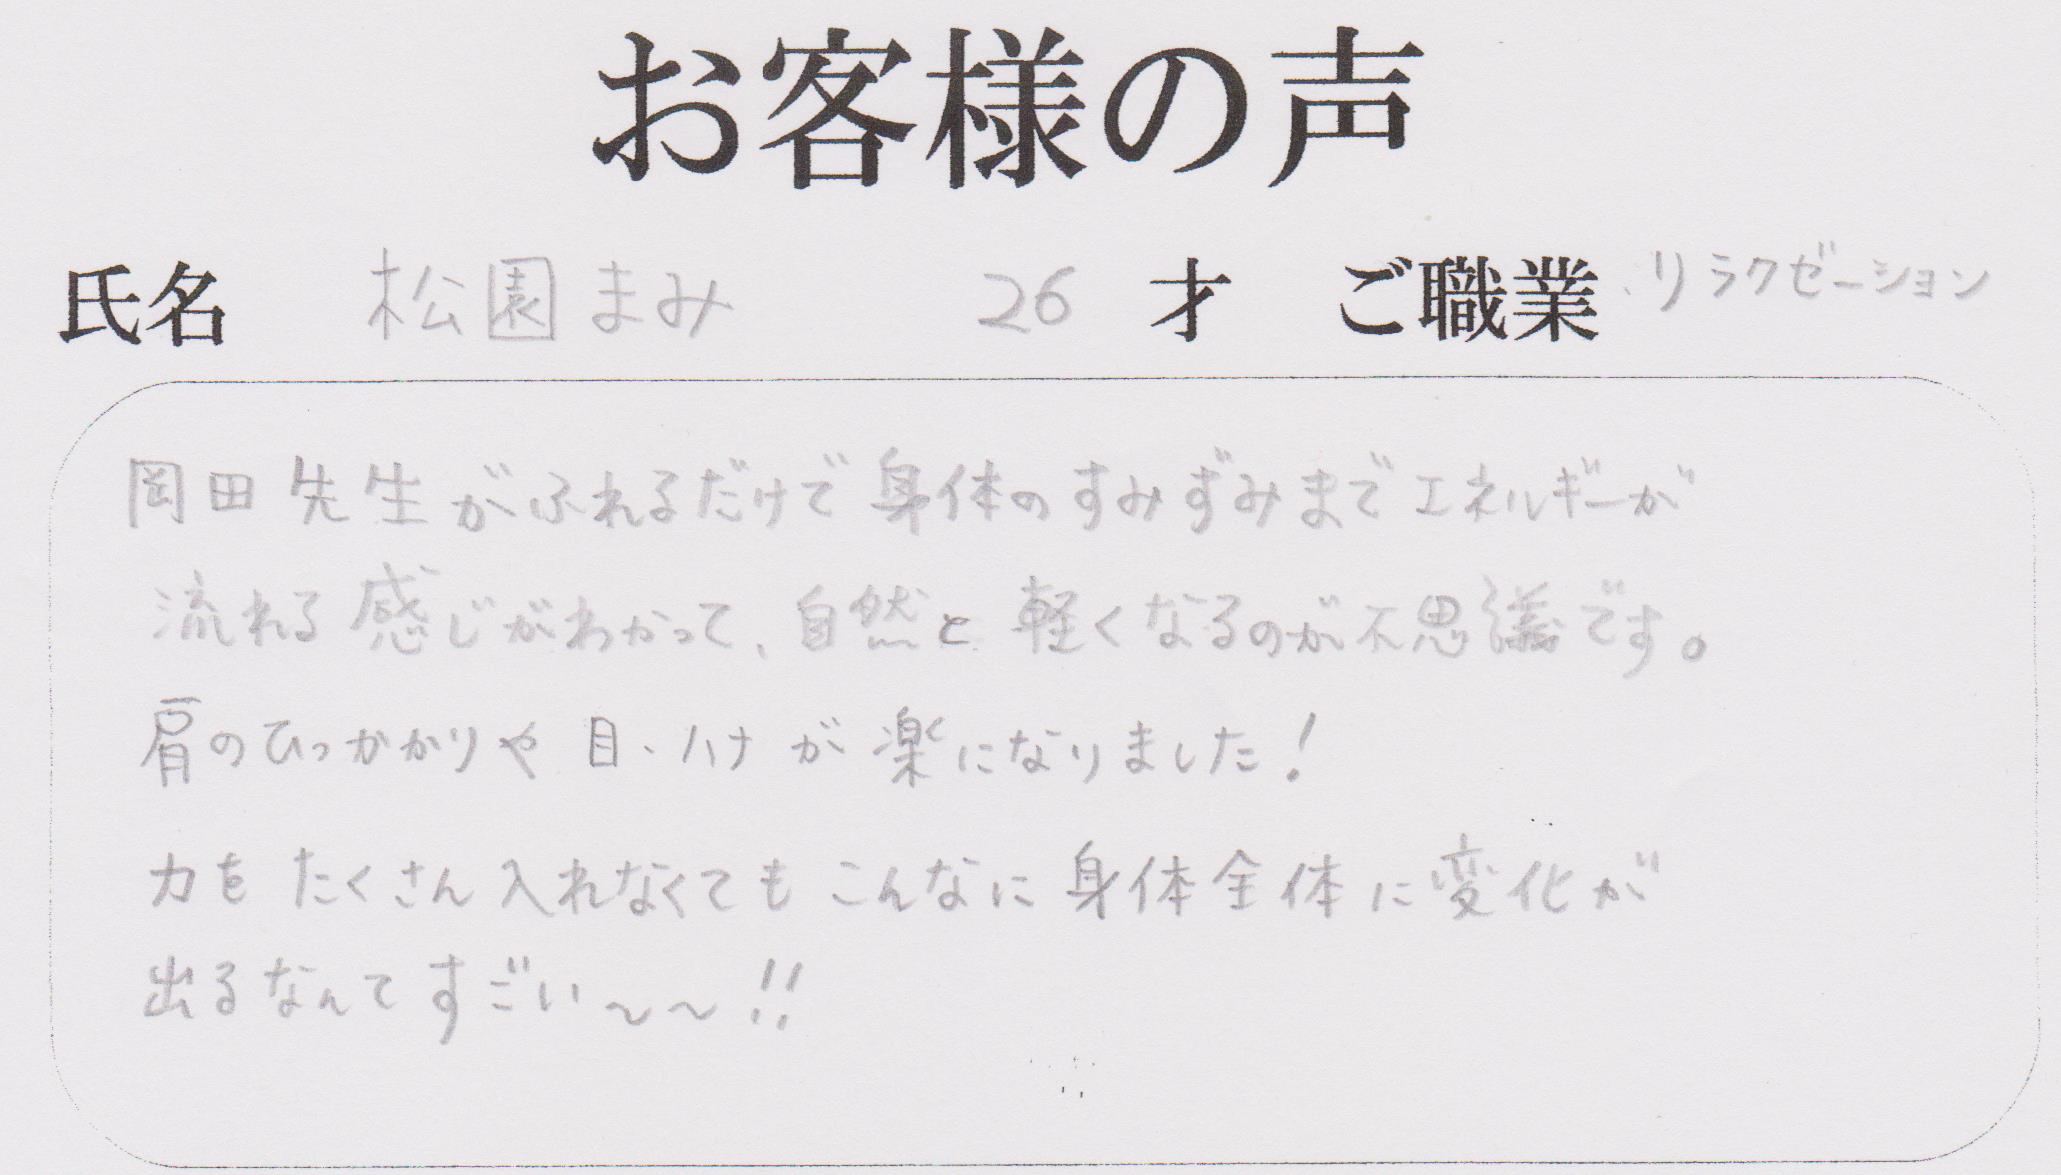 お客様の声
氏名 松園まみ 26 才 ご職業 リラクゼーション
岡田先生がふれるだけで身体のすみずみまでエネルギーが
流れる感じがわかって、自然と軽くなるのが不思議です。
肩のひっかかりや目・ハナが楽になりました!
力をたくさん入れなくてもこんなに身体全体に変化が
出るなんてすごい~~!!